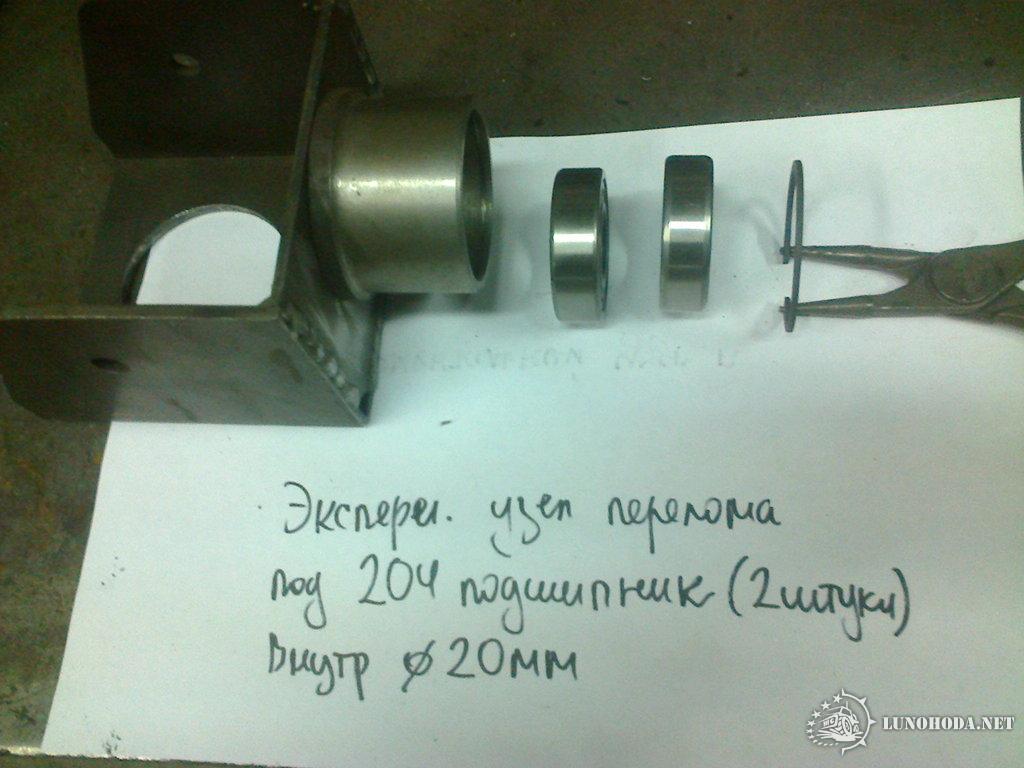 Эксперем. узел перелома
под 204 подшипник (2штуки)
Внутр ⌀20мм
LUNOHODA.NET